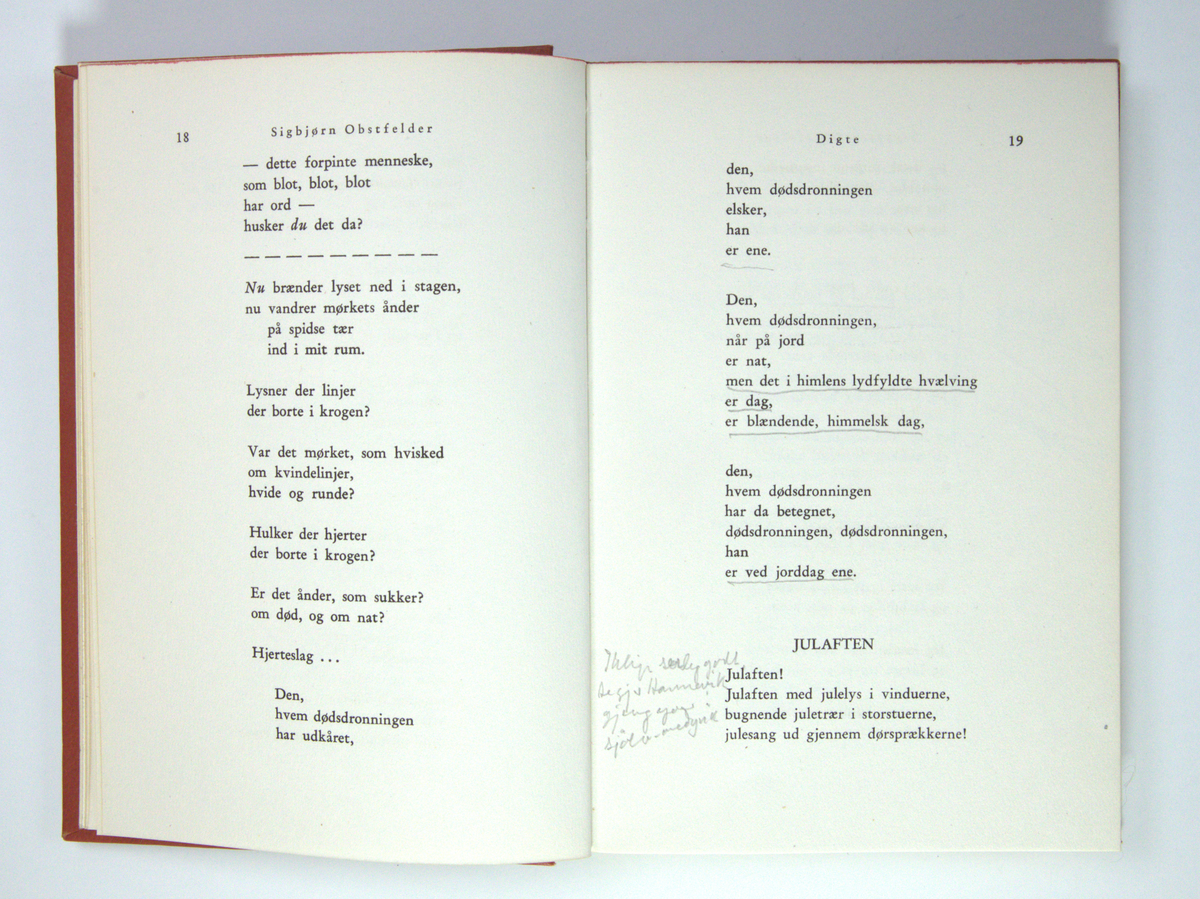 18
Sigbjørn Obstfelder
— dette forpinte menneske,
som blot, blot, blot
har ord —
husker du det da?
— — — — — — — — — —
Nu brænder lyset ned i stagen,
nu vandrer mørkets ånder
på spidse tær
ind i mit rum.
Lysner der linjer
der borte i krogen?
Var det mørket, som hvisked
om kvindelinjer,
hvide og runde?
Hulker der hjerter
der borte i krogen?
Er det ånder, som sukker?
om død, og om nat?
Hjerteslag ...
Den,
hvem dødsdronningen
har udkåret,
Digte
19
den,
hvem dødsdronningen
elsker,
han
er ene.
Den,
hvem dødsdronningen,
når på jord
er nat,
men det i himlens lydfyldte hvælving
er dag,
er blændende, himmelsk dag,
den,
hvem dødsdronningen
har da betegnet,
dødsdronningen, dødsdronningen,
han
er ved jorddag ene.
JULAFTEN
Julaften!
Julaften med julelys i vinduerne,
bugnende juletrær i storstuerne,
julesang ud gjennem dørsprækkerne!
godt